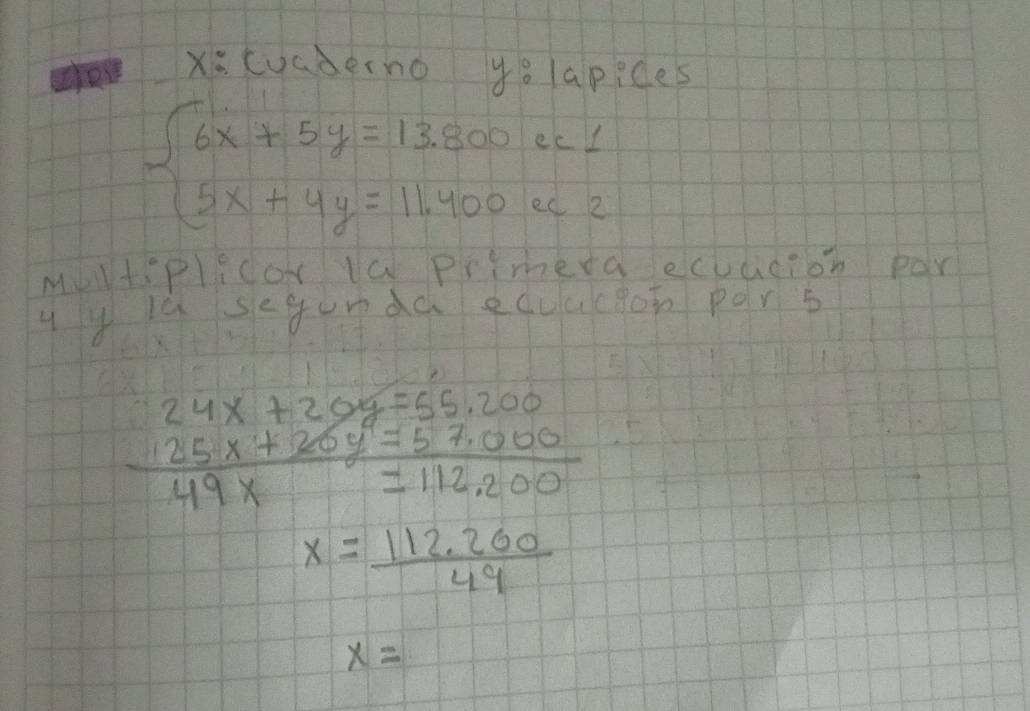 x: Cuaderno y: lapices
6x + 5y = 13.800 ec 1
5x + 4y = 11.400 ec 2
Multiplicor la primera ecuación por
4 y la segunda ecuación por 5
24x + 20y = 55.200
25x + 20y = 57.000
49x = 112.200
x = 112.200
49
x =